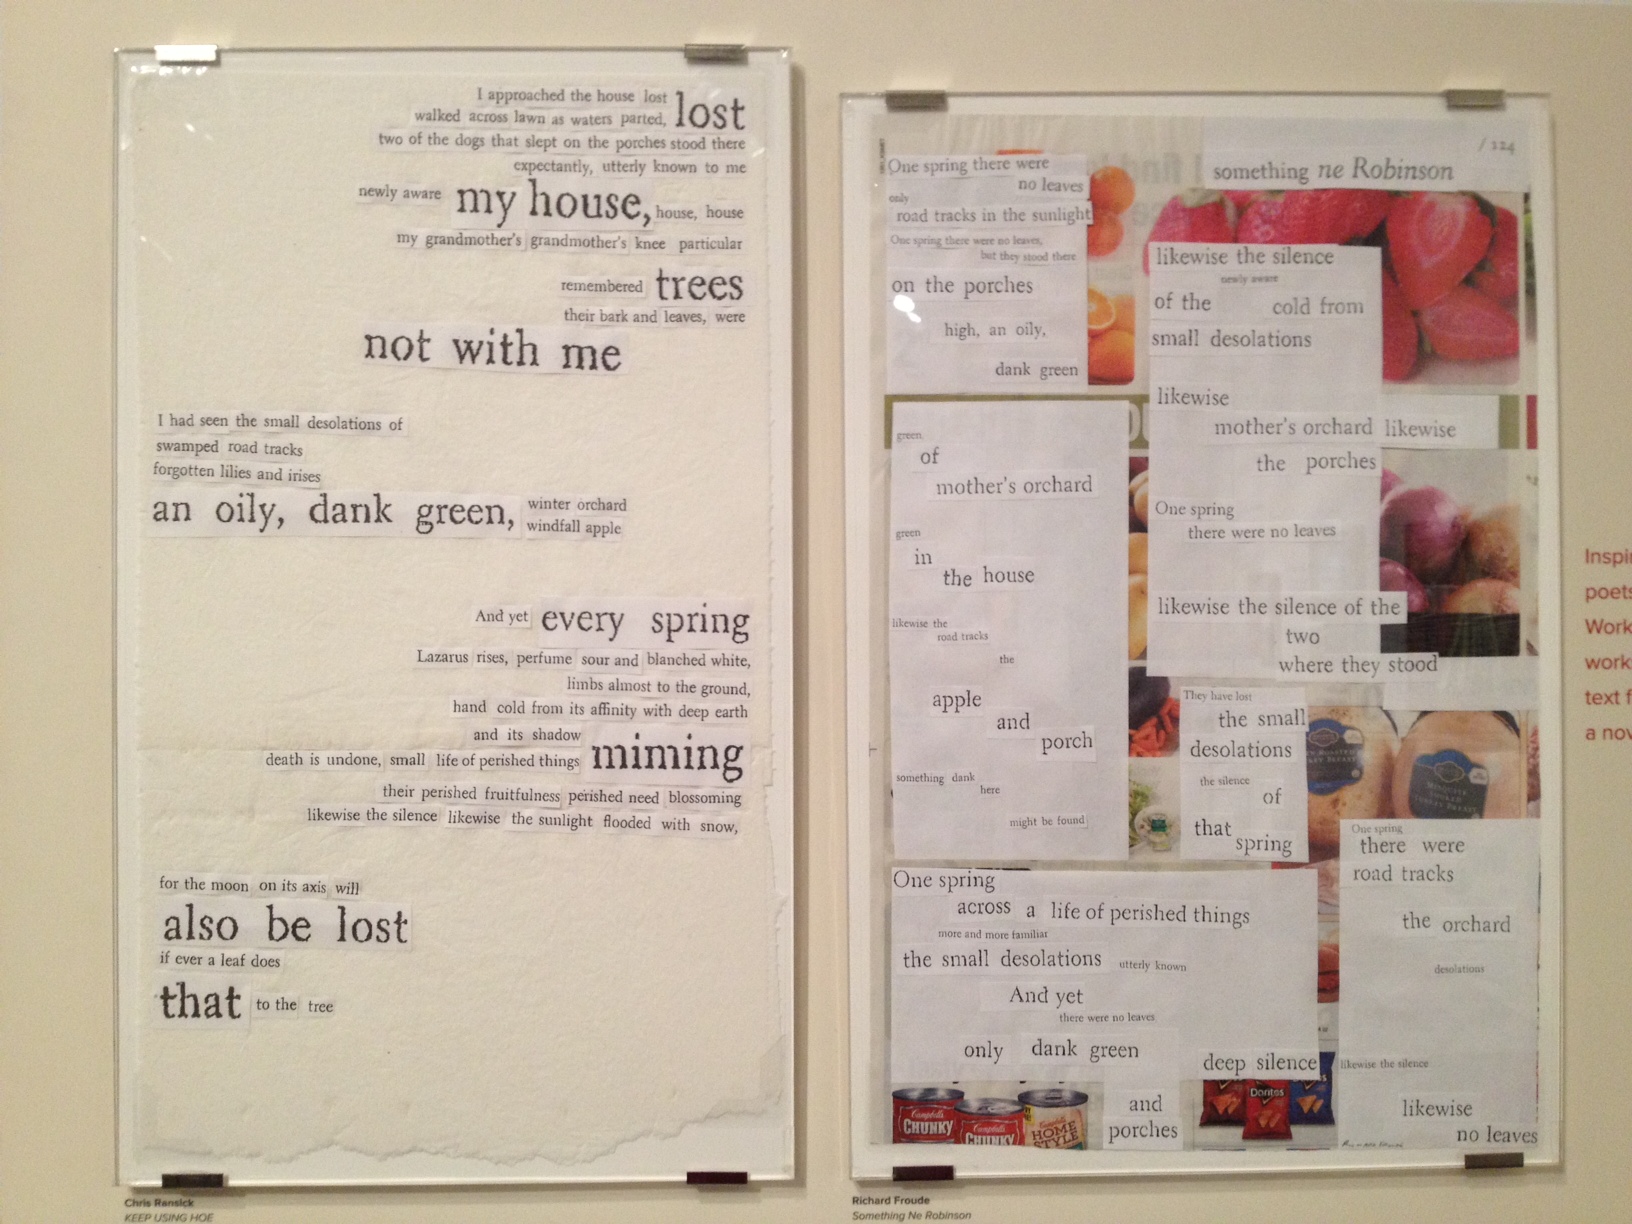 I approached the house lost lost
walked across lawn as waters parted,
two of the dogs that slept on the porches stood there
expectantly, utterly known to me
newly aware my house, house, house
my grandmother's grandmother's knee particular
remembered trees
their bark and leaves, were
not with me
I had seen the small desolations of
swamped road tracks
forgotten lilies and irises
an oily, dank green, winter orchard
windfall apple
And yet every spring
Lazarus rises, perfume sour and blanched white,
limbs almost to the ground,
hand cold from its affinity with deep earth
and its shadow
death is undone, small life of perished things miming
their perished fruitfulness perished need blossoming
likewise the silence likewise the sunlight flooded with snow,
for the moon on its axis will
also be lost
if ever a leaf does
that to the tree
Chris Ransick
KEEP USING HOE
/ 124
something ne Robinson
One spring there were
no leaves
only
road tracks in the sunlight
One spring there were no leaves,
but they stood there
on the porches
high, an oily,
dank green
green,
of
mother's orchard
green
in
the house
likewise the
road tracks
the
apple
and
porch
something dank
here
might be found
likewise the silence
newly aware
of the cold from
small desolations
likewise
mother's orchard likewise
the porches
One spring
there were no leaves
likewise the silence of the
two
where they stood
They have lost
the small
desolations
the silence
of
that
spring
One spring
across a life of perished things
more and more familiar
the small desolations utterly known
And yet
there were no leaves
only dank green
deep silence
and
porches
One spring
there were
road tracks
the orchard
desolations
likewise the silence
likewise
no leaves
Campbell's
CHUNKY
Campbell's
CHUNKY
HOME
STYLE
Doritos
Richard Froude
Something Ne Robinson
Inspi
poets
Work
work
text f
a nov